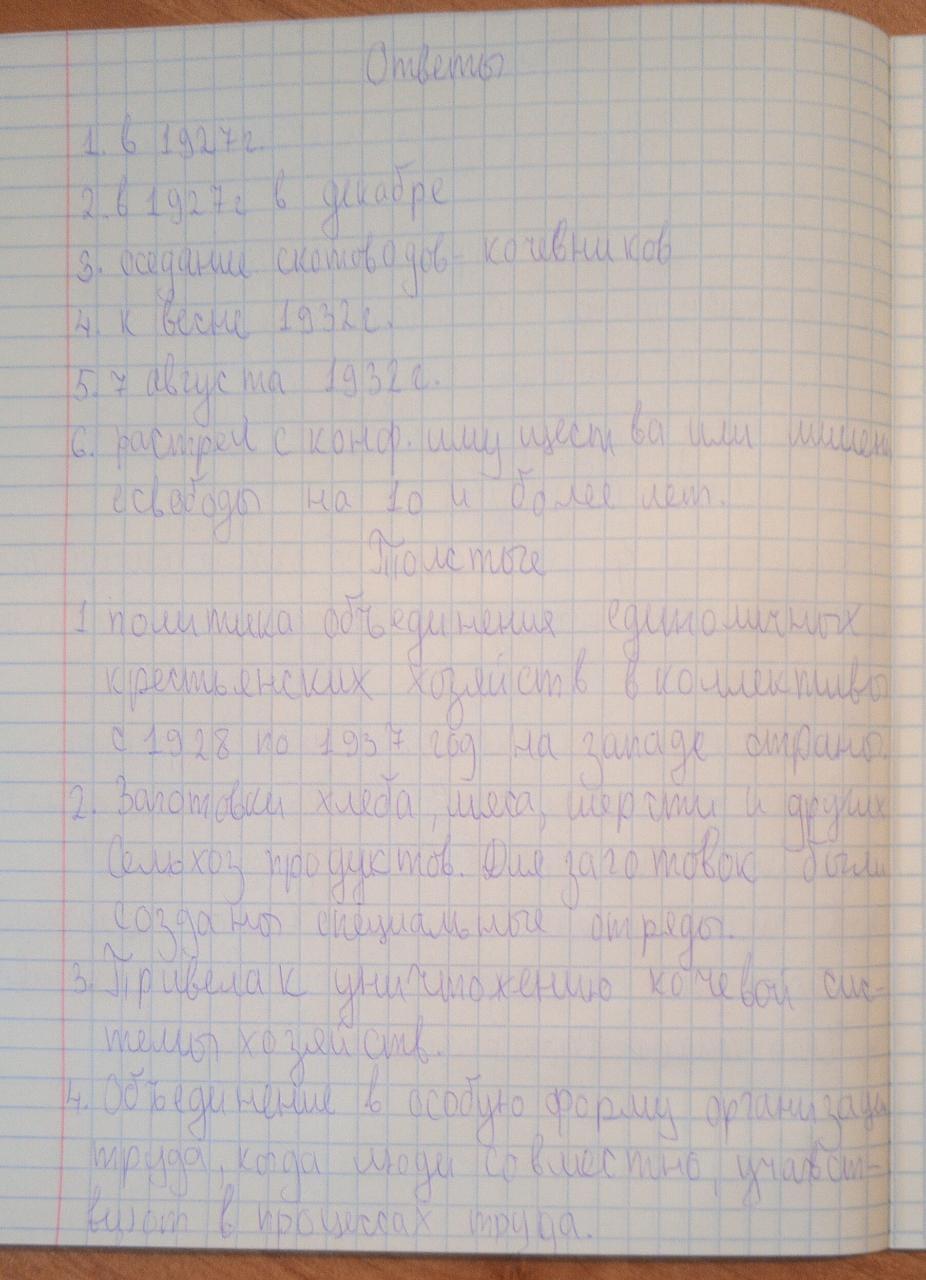 Ответы
1. в 1927г.
2. в 1927г в декабре
3. оседание скотоводов-кочевников
4. к весне 1932г.
5. 7 августа 1932г.
6. растрел с конф. имущества или лишен
есвободы на 10 и более лет.
Толстые
1 политика объединения единоличных
крестьянских хозяйств в коллективы
с 1928 по 1937 год на западе страны.
2. Заготовки хлеба, мяса, шерсти и других
сельхоз продуктов. Для заготовок были
созданы специальные отряды.
3. Привела к уничтожению кочевой сис-
темы хозяйств.
4. Объединение в особую форму организаци
труда, когда люди совместно, участ-
вуют в процессах труда.